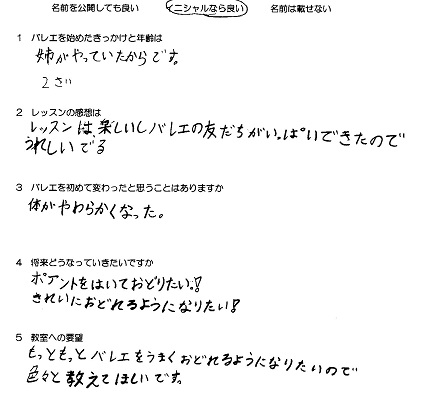 名前を公開しても良い イニシャルなら良い 名前は載せない
1 バレエを始めたきっかけと年齢は
姉がやっていたからです。
2さい
2 レッスンの感想は
レッスンは、楽しいしバレエの友だちがいっぱいできたので
うれしいでる
3 バレエを初めて変わったと思うことはありますか
体がやわらかくなった。
4 将来どうなっていきたいですか
ポアントをはいておどりたい。!
きれいにおどれるようになりたい!
5 教室への要望
もっともっとバレエをうまくおどれるようになりたいので
色々と教えてほしいです。